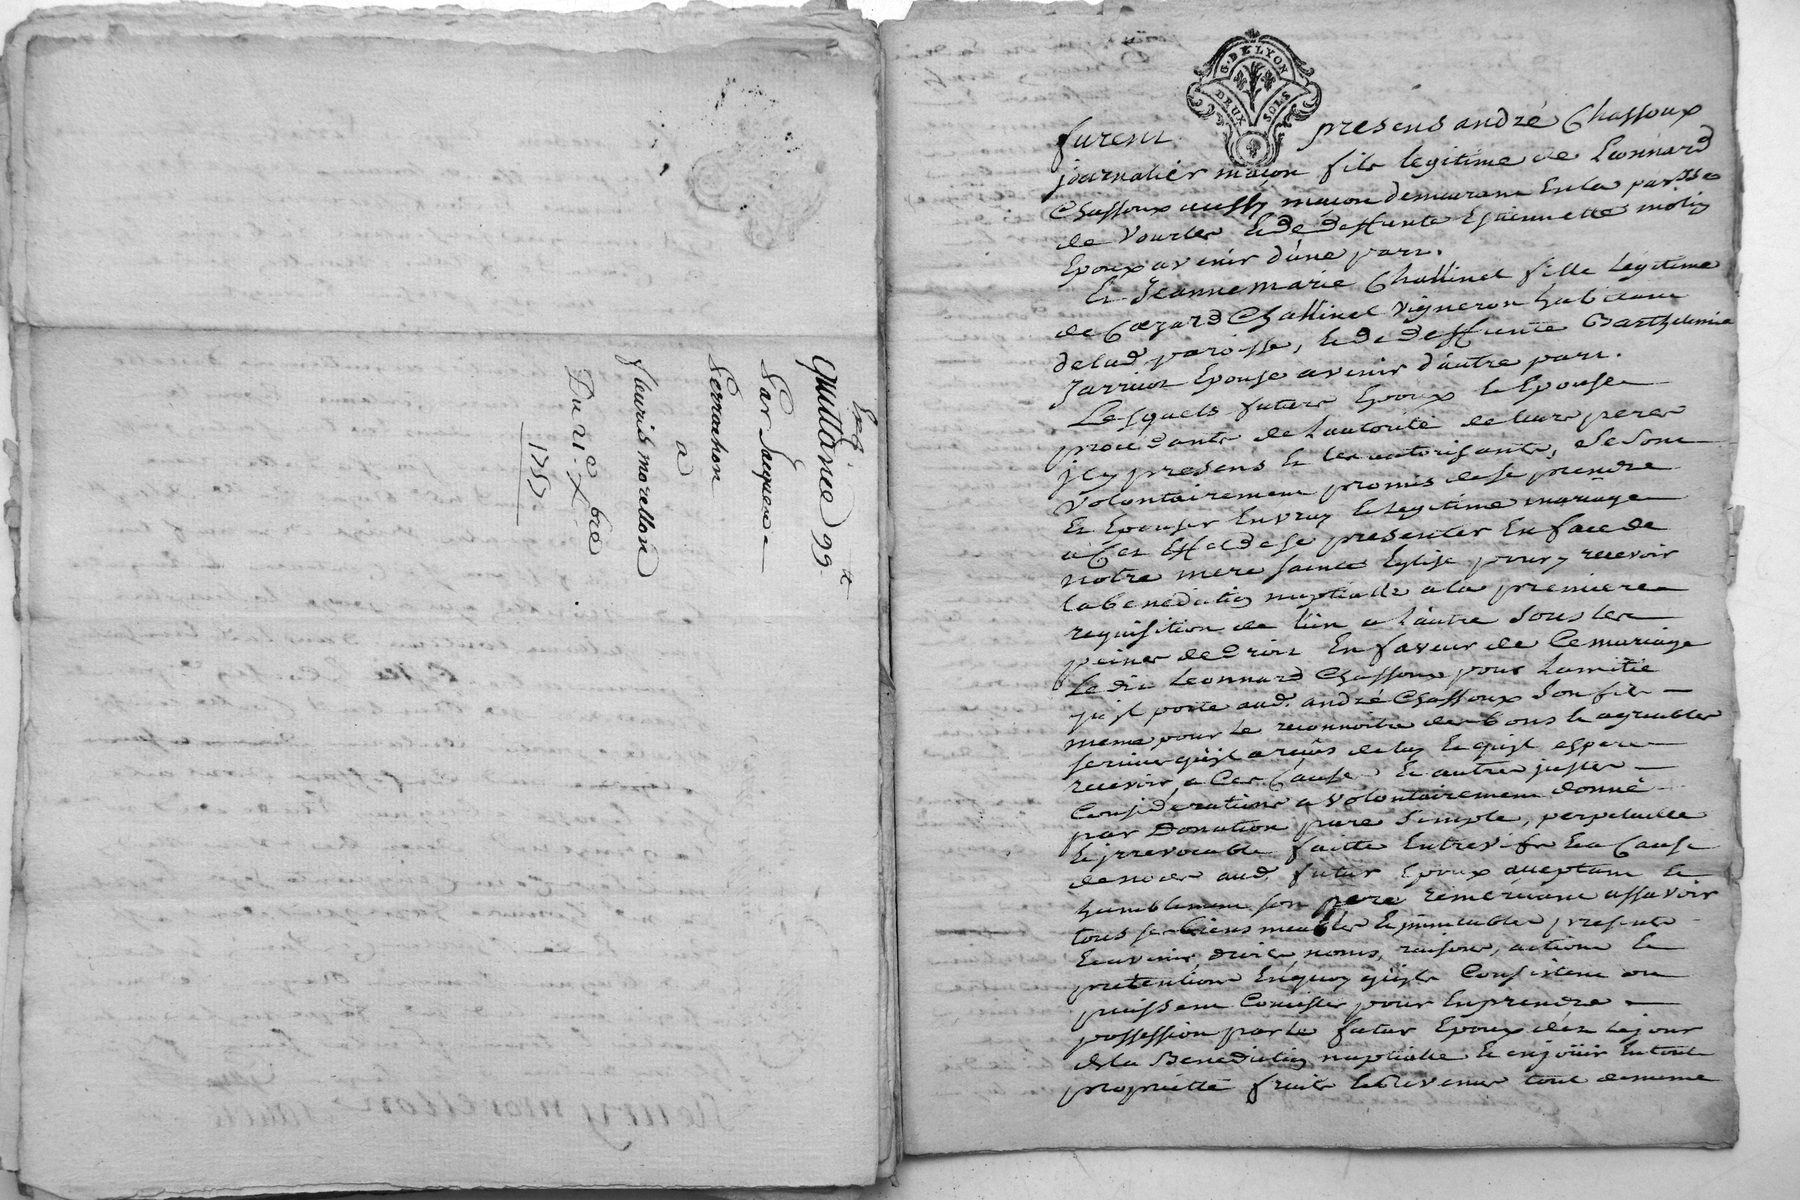 Exp
Quittance 99 tt
Par Jacqueme
Perrachon
a
fleuris morellon
Du 11e xbre
1757
G. DE LYON
DEUX SOLS
furent presens andré Chassoux
journalier maçon fils legitime de Leonnard
Chassoux aussy maçon demeurant En la parisse
de Vourles Et de deffunte Estiennette
Epoux avenir d'une part.
Et Jeanne marie Challinel fille legitime
de Challinel vigneron habitant
de lad. paroisse, Et de deffunte Barthelemie
Jarricot Epouse avenir d'autre part.
Lesquels futurs Epoux Et Epouse
procedants de l'autorité de leurs peres
jcy presens Et les autorisants, se sont
volontairement promis de se prendre
Et Epouser En vray Et legitime mariage
a Cet Effet de se presenter En face de
notre mere sainte Eglise pour y recevoir
la benediction nuptialle a la premiere
requisition de l'un a l'autre sous les
peines de droit En faveur de Ce mariage
Ledit Leonnard Chassoux pour L'amitié
qu'il porte aud. andré Chassoux Son fils
meme pour Le reconnoitre des bons Et agreables
services qu'il a reçus de luy Et qu'il espere
recevoir, a Ces Causes Et autres justes
Considerations a volontairement donné
par Donation pure Simple, perpetuelle
Et jrrevocable faitte Entrevifs Et a Cause
de noces aud. futur Epoux acceptant Et
humblement son pere remerciant assavoir
tous ses biens meubles Et jmmeubles presents
Et avenir, droits noms, raisons, actions Et
pretentions En quoy qu'ils Consistent ou
puissent Consister pour En prendre
possession par Le futur Epoux dez Le jour
de la Benediction nuptialle Et en joüir En toute
proprietté fruits Et Revenus tout de meme